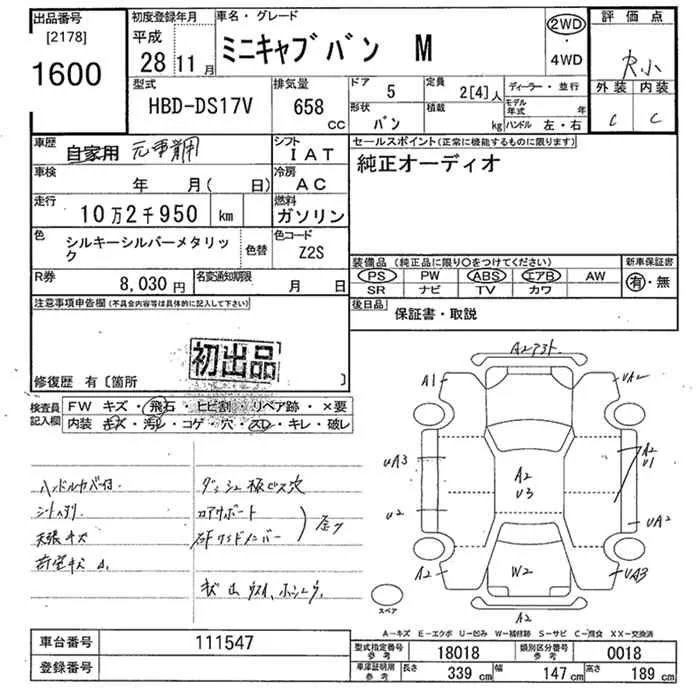 出品番号
[2178]
1600
初度登録年月
平成
28 11月
車名・グレード
ミニキャブバン M
2WD
・
4WD
評価点
外装 内装
C C
型式
HBD-DS17V
排気量
658
CC
ドア
5
定員
2[4]人
形状
バン
積載
kg
ディーラー・並行
モデル年式 年
ハンドル 左・右
車歴
自家用
シフト
IAT
セールスポイント(正常に機能するものに限ります)
純正オーディオ
車検
年 月( 日)
冷房
AC
走行
10万2千950 km
燃料
ガソリン
色
シルキーシルバーメタリック
色替
色コード
Z2S
R券
8,030円
名変通知期限
月 日
装備品(純正品に限り○をつけてください)
PS PW ABS エアB AW
SR ナビ TV カワ
新車保証書
有・無
後日品
保証書・取説
注意事項申告欄(不具合内容等は具体的に記入して下さい)
初出品
修復歴 有〔箇所 〕
検査員記入欄
FW キズ・飛石・ヒビ割・リペア跡・×要
内装 キズ・汚レ・コゲ・穴・スレ・キレ・破レ
ハンドルカバー付
天張キズ
ダッシュ板ビス穴
コアサポート
A1
UA2
UA3
U2
A2
A2
U3
A2
U1
UA2
W2
UA3
A2
スペア
A-キズ E-エクボ U-凹み W-補修跡 S-サビ C-腐食 XX-交換済
車台番号
111547
登録番号
型式指定番号
参考
18018
類別区分番号
参考
0018
車庫証明用
参考
長さ
339 cm
幅
147 cm
高さ
189 cm